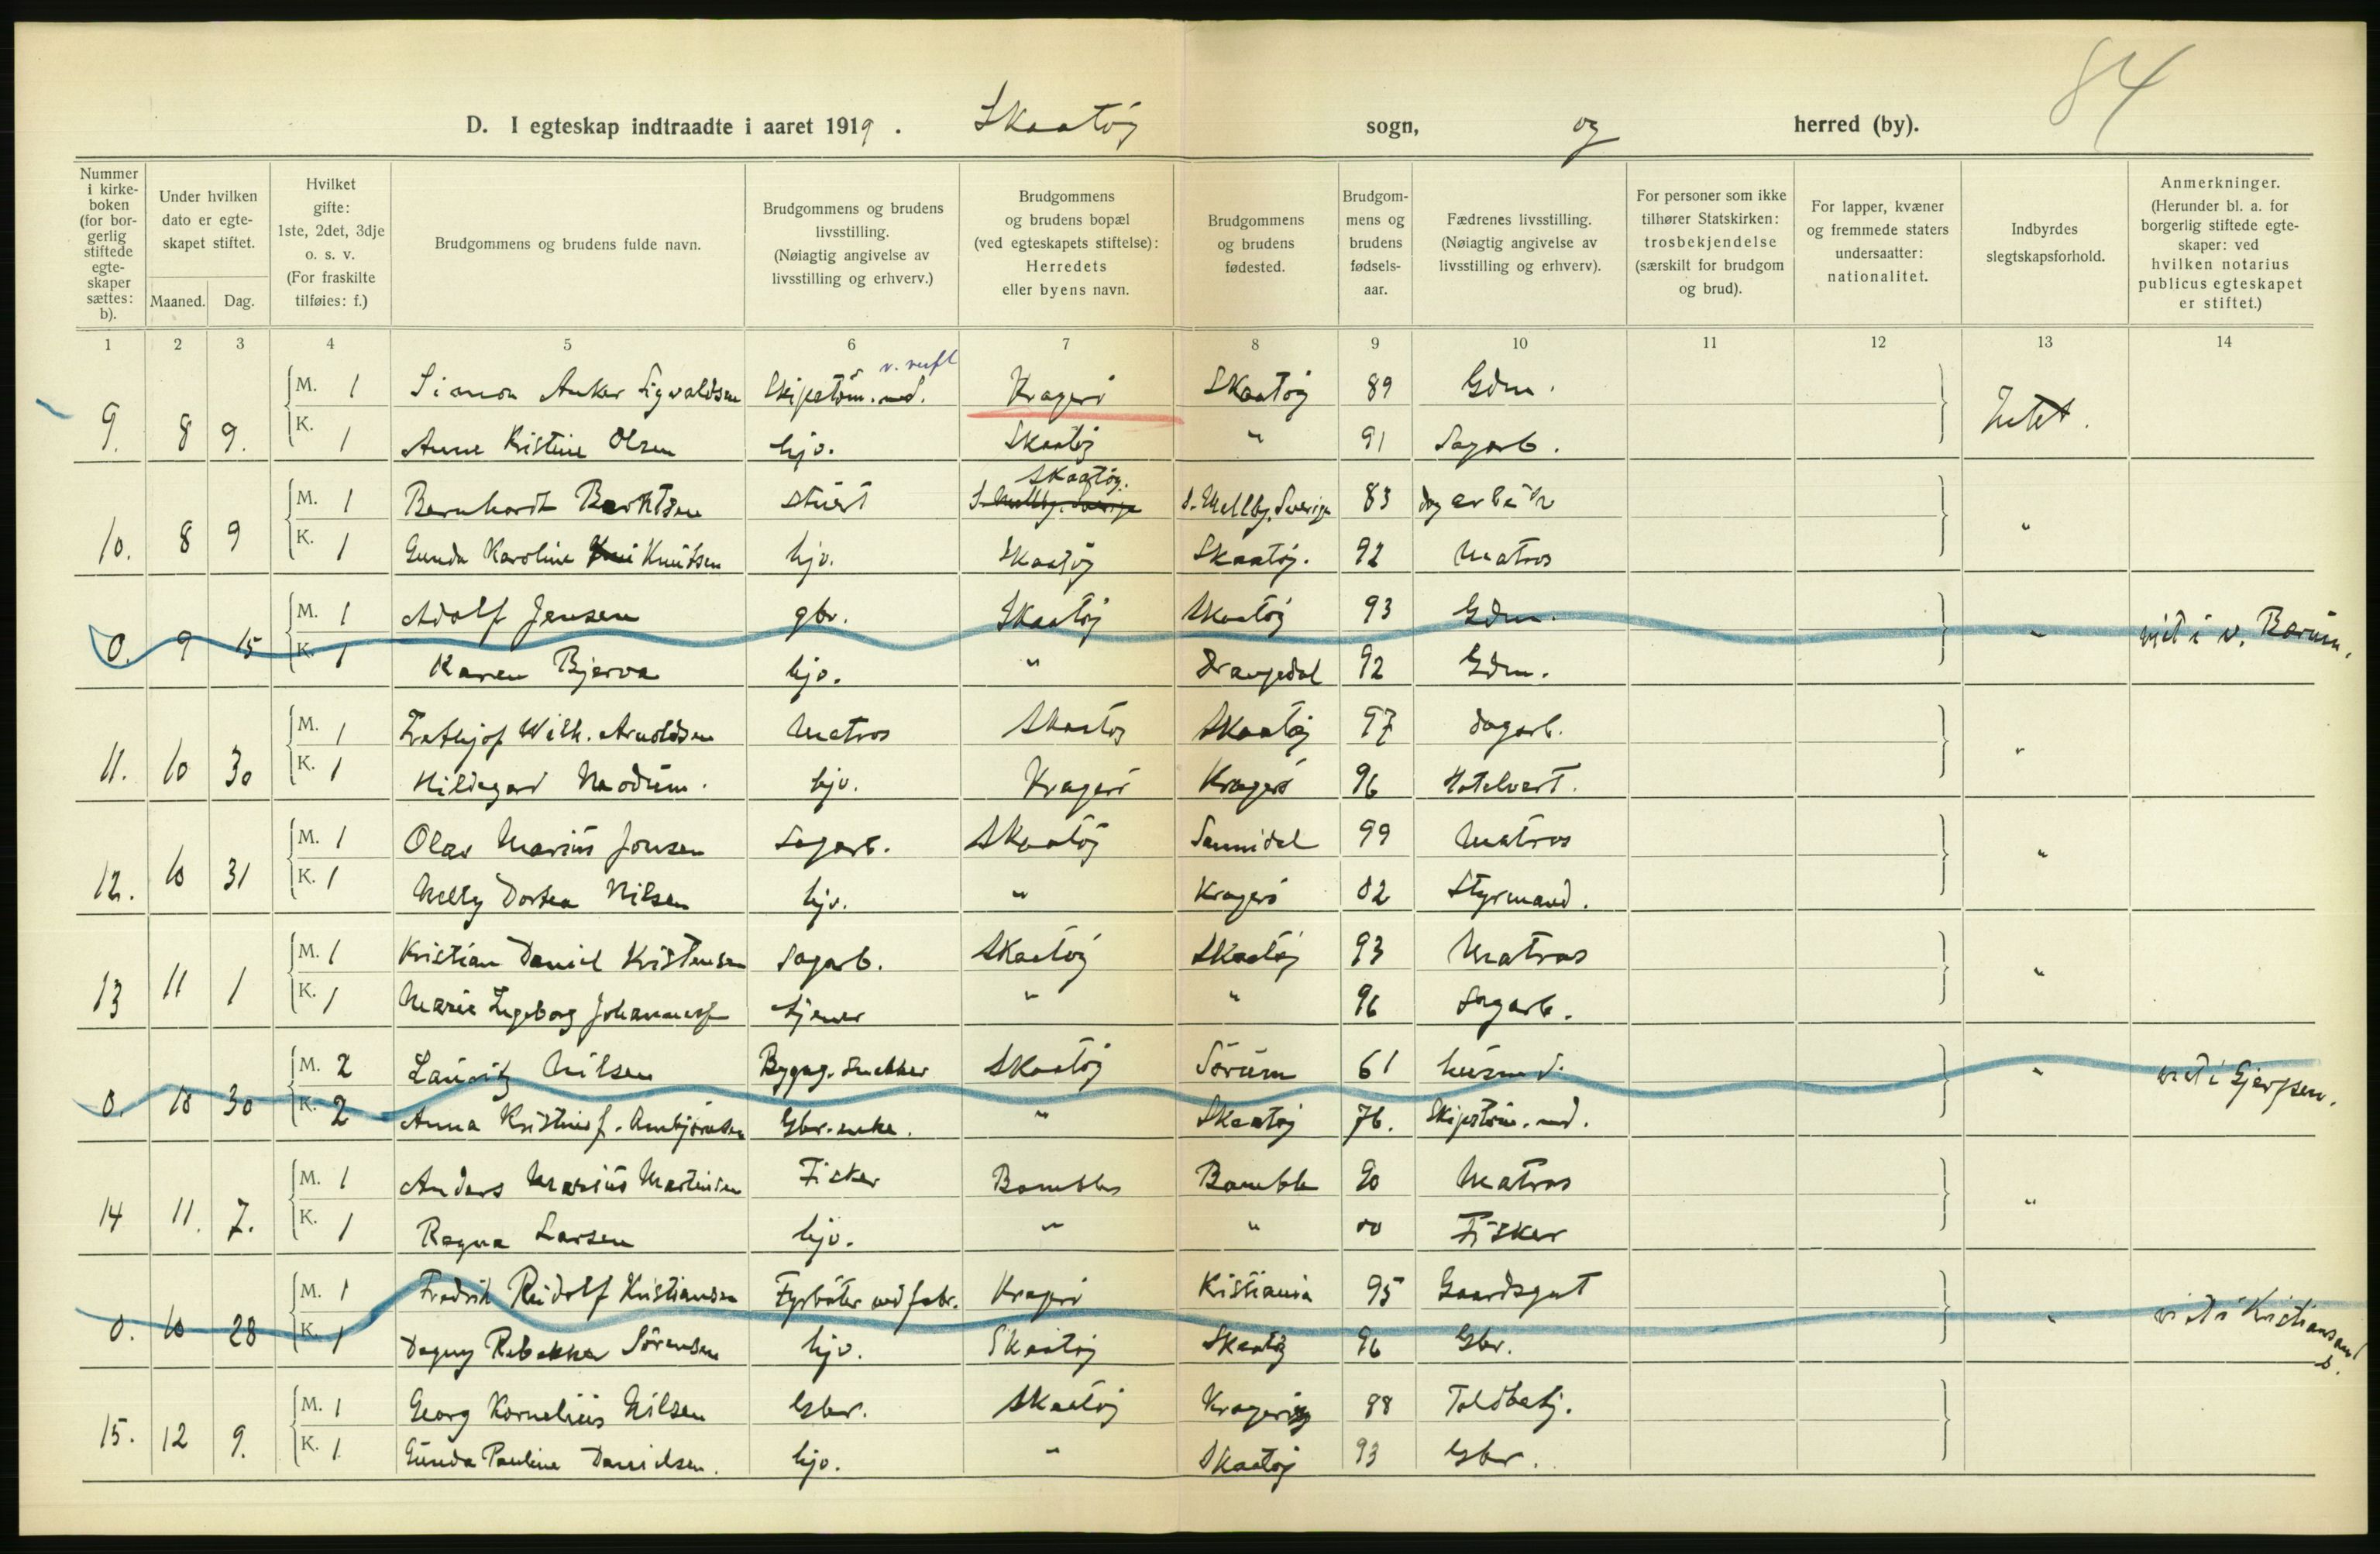 84
D. I egteskap indtraadte i aaret 1919. Skaatøy sogn, og herred (by).
Nummer i kirkeboken (for borgerlig stiftede egteskaper sættes: b).
Under hvilken dato er egteskapet stiftet.
Maaned. Dag.
Hvilket gifte: 1ste, 2det, 3dje o. s. v. (For fraskilte tilføies: f.)
Brudgommens og brudens fulde navn.
Brudgommens og brudens livsstilling. (Nøiagtig angivelse av livsstilling og erhverv.)
Brudgommens og brudens bopæl (ved egteskapets stiftelse): Herredets eller byens navn.
Brudgommens og brudens fødested.
Brudgommens og brudens fødselsaar.
Fædrenes livsstilling. (Nøiagtig angivelse av livsstilling og erhverv).
For personer som ikke tilhører Statskirken: trosbekjendelse (særskilt for brudgom og brud).
For lapper, kvæner og fremmede staters undersaatter: nationalitet.
Indbyrdes slegtskapsforhold.
Anmerkninger. (Herunder bl. a. for borgerlig stiftede egteskaper: ved hvilken notarius publicus egteskapet er stiftet.)
1 2 3 4 5 6 7 8 9 10 11 12 13 14
M. 1 Simon Anker Sigvaldsen Skipstøm.md. Kragerø Skaatøy 89 Gdm.
9. 8 9. K. 1 Anne Kristine Olsen hjv. Skaatøy " 91 Sagarb. Intet.
Skaatøy.
M. 1 Bernhardt Berntsen stuert S. Mellby. Sverige S. Mellby, Sverige 83 dagarbeider
10. 8 9 K. 1 Gunda Karoline Knutsen hjv. Skaatøy Skaatøy. 92 Matros "
M. 1 Adolf Jensen gbr. Skaatøy Skaatøy 93 Gdm.
0. 9 15 K. 1 Karen Bjerva hjv. " Drangedal 92 Gdm. " viet i v. Bærum.
M. 1 Frithjof Wilh. Arnoldsen Matros Skaatøy Skaatøy 97 dagarb.
11. 10 30 K. 1 Hildegard Modum. hjv. Kragerø Kragerø 96 Hotelvert. "
M. 1 Olav Marius Jonsen Sagarb. Skaatøy Sannidal 99 Matros
12. 10 31 K. 1 Melly Dortea Nilsen hjv. " Kragerø 02 Styrmand. "
M. 1 Kristian Daniel Kristensen Sagarb. Skaatøy Skaatøy 93 Matros
13 11 1 K. 1 Marie Ingeborg tjener " " 96 Sagarb. "
M. 2 Lauritz Nilsen Bygng. snekker Skaatøy Sørum 61 husmd.
0. 10 30 K. 2 Anna Kristine f. Anbjørnsen Gbr. enke. " Skaatøy 76. Skipstøm. md. " viet i Gjerpen.
M. 1 Anders Marius Martinsen Fisker Bamble Bamble 90 Matros
14 11. 7. K. 1 Ragna Larsen hjv. " " 00 Fisker "
M. 1 Fredrik Rudolf Kristiansen Fyrbøter ved fabr. Kragerø Kristiania 95 Gaardsgut
0. 10 28 K. 1 Dagny Rebekka Sørensen hjv. Skaatøy Skaatøy 96 Gbr. " viet i Kristiansand S.
M. 1 Georg Kornelius Nilsen Gbr. Skaatøy Kragerø 88 Toldbetj.
15. 12 9. K. 1 Gunda Pauline Danielsen. hjv. " Skaatøy 93 Gbr.